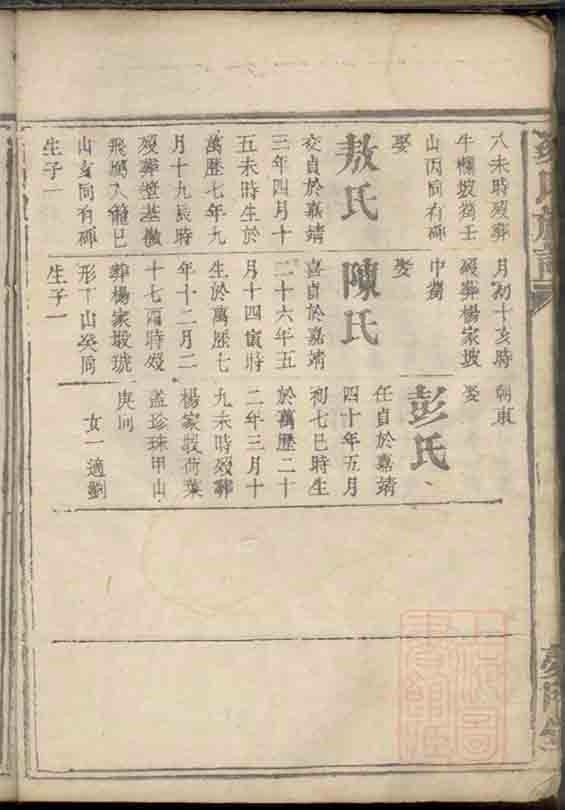 八未時歿葬
牛欄坡茔壬
山丙向有碑
娶
敖氏
交貞於嘉靖
三年四月十
五未時生於
萬歷七年九
月十九辰時
歿葬堂基
飛鳳入 巳
山亥向有碑
生子一
月初十亥時
歿葬楊家坡
中茔
娶
陳氏
喜貞於嘉靖
二十六年五
月十四寅時
生於萬歷七
年十二月二
十七酉時歿
葬楊家塅琥
形丁山癸向
生子一
朝東
娶
彭氏
任貞於嘉靖
四十年五月
初七巳時生
於萬歷二十
二年三月十
九未時歿葬
楊家塅荷葉
蓋珍珠甲山
庚向
女一適劉
氏族譜